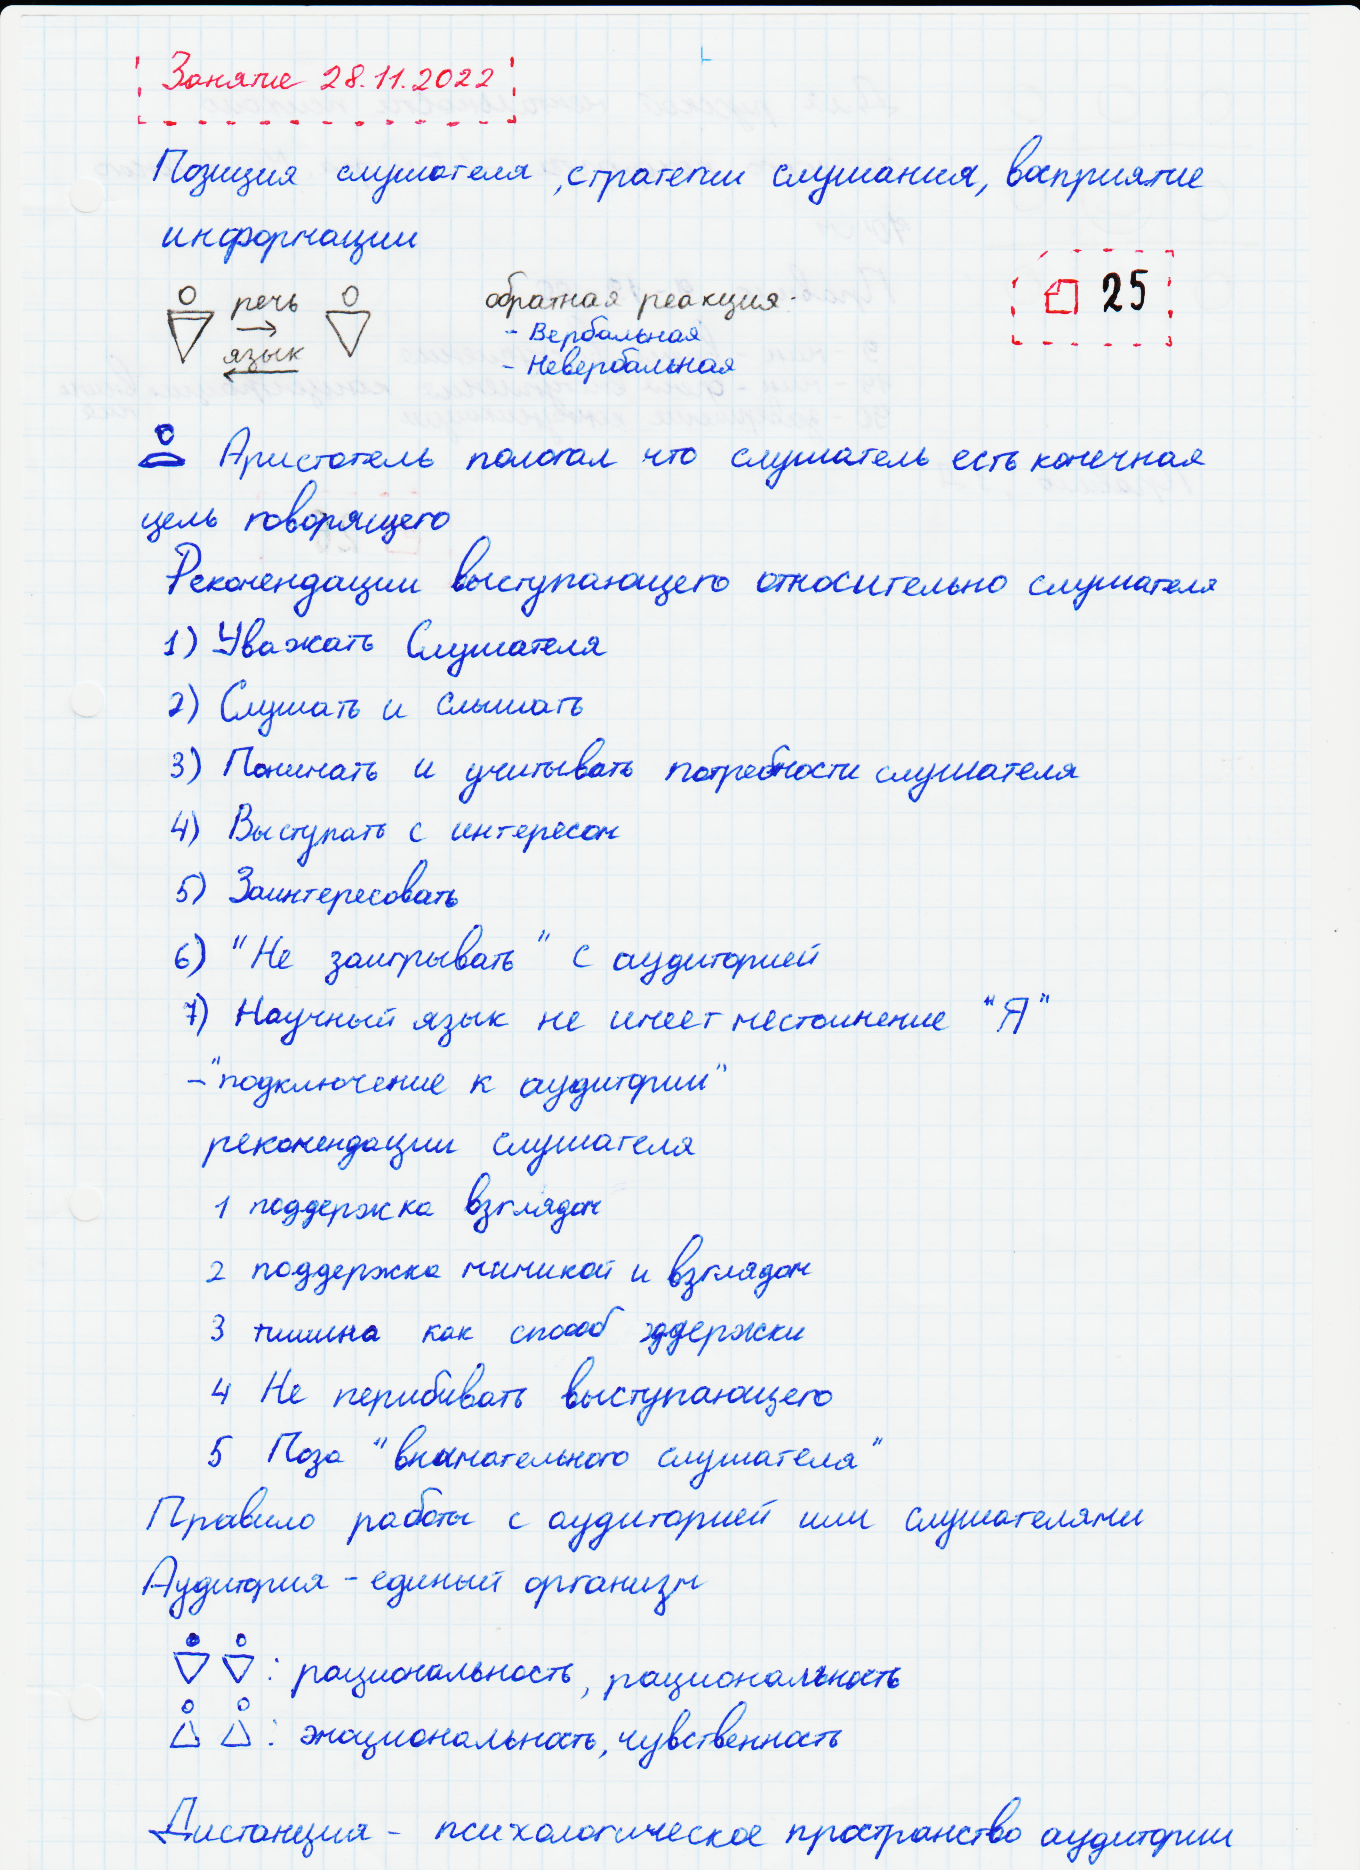 Занятие 28.11.2022
Позиция слушателя, стратегии слушания, восприятие
информации
25
речь
язык
обратная реакция.
- Вербальная
- Невербальная
Аристотель пологал что слушатель есть конечная
цель говорящего
Рекомендации выступающего относительно слушателя
1) Уважать Слушателя
2) Слушать и слышать
3) Понимать и учитывать потребности слушателя
4) Выступать с интересом
5) Заинтересовать
6) "Не заигрывать" с аудиторией
7) Научный язык не имеет местоимение "Я"
- "подключение к аудитории"
рекомендации слушателя
1 поддержка взглядом
2 поддержка мимикой и взглядом
3 тишина как способ ддержки
4 Не перибивать выступающего
5 Поза "внимательного слушателя"
Правило работы с аудиторией или слушателями
Аудитория - единый организм
: рациональность, рациональность
: эмоциональность, чувственность
Дистанция - психологическое пространство аудитории